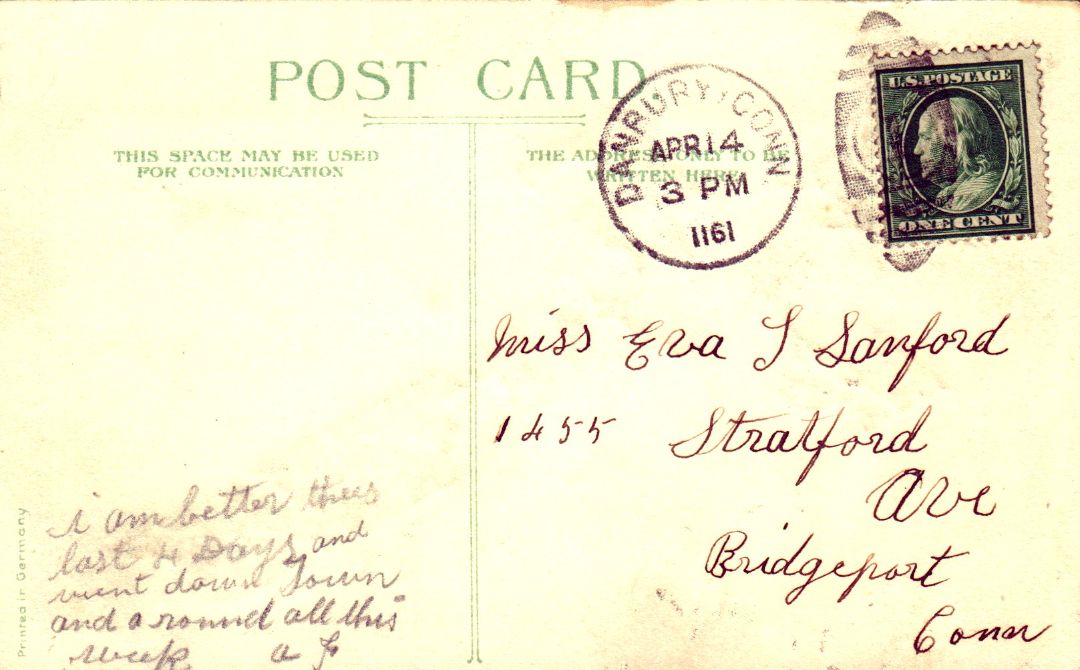 POST CARD
THIS SPACE MAY BE USED
FOR COMMUNICATION
THE ADDRESS ONLY TO BE
WRITTEN HERE
DANBURY, CONN
APR 14
3 PM
1161
U.S. POSTAGE
ONE CENT
Miss Eva S Sanford
1455 Stratford
Ave
Bridgeport
Conn
i am better thees
last 4 Days and
went down Town
and around all this
week a F
Printed in Germany